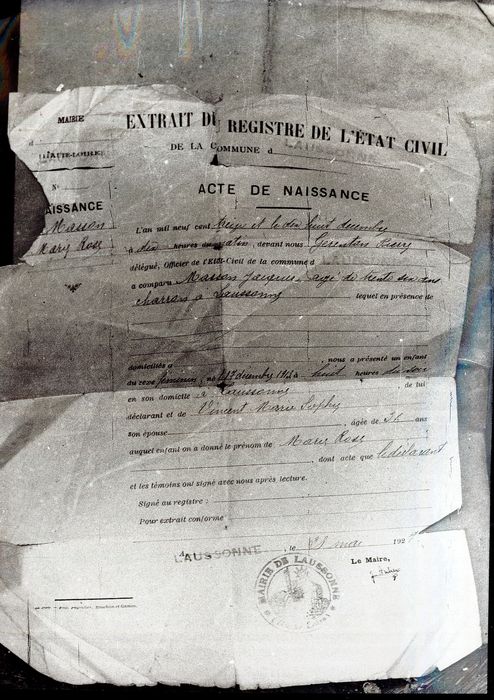 MAIRIE
d
HAUTE-LOIRE
N°
NAISSANCE
Masson
Mary Rose
EXTRAIT DU REGISTRE DE L'ÉTAT CIVIL
DE LA COMMUNE d LAUSSONNE
ACTE DE NAISSANCE
L'an mil neuf cent treize et le dix huit décembre
à dix heures du matin, devant nous
délégué, Officier de l'Etat-Civil de la commune d
a comparu Masson Jacques âgé de trente six ans
charron à Laussonne lequel en présence de
domiciliés à , nous a présenté un enfant
du sexe féminin, né le 17 décembre à huit heures du soir
en son domicile à Laussonne de lui
déclarant et de Vincent Marie Sophie
son épouse âgée de 36 ans
auquel enfant on a donné le prénom de Marie Rose
, dont acte que le déclarant
et les témoins ont signé avec nous après lecture.
Signé au registre :
Pour extrait conforme
A LAUSSONNE, le mai 192
Le Maire,
MAIRIE DE LAUSSONNE